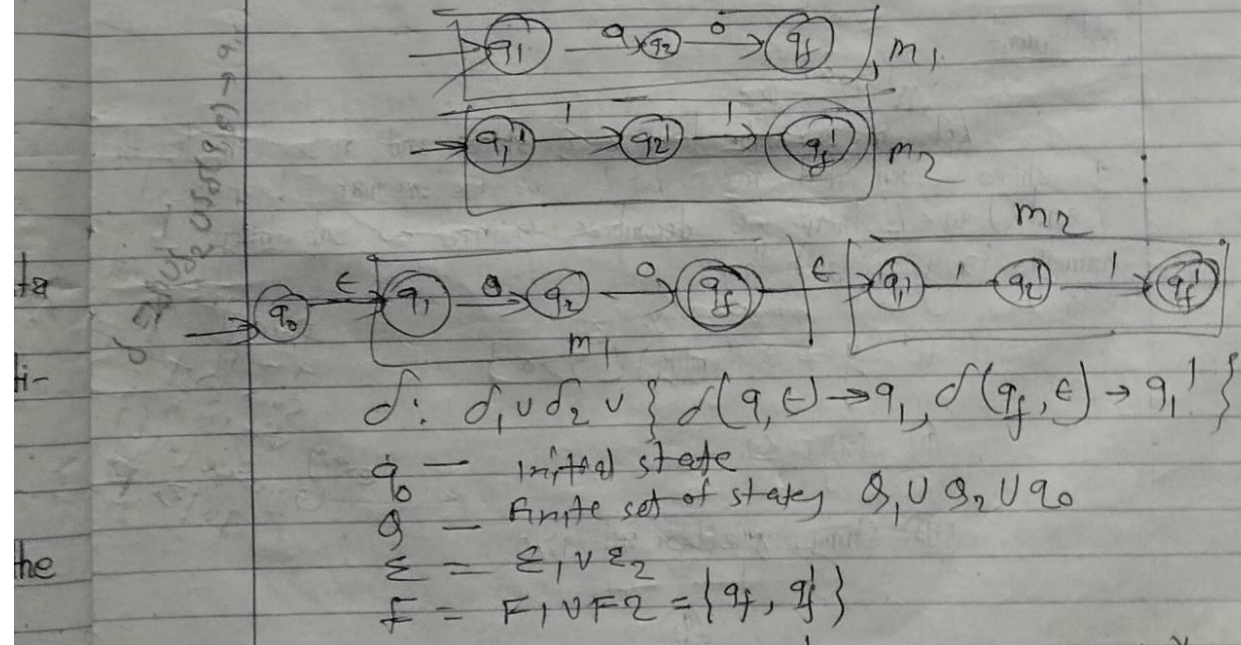 q₁ 0 q₂ 0 q_f , m₁
q₁' 1 q₂' 1 q_f' m₂
m₂
q₀ ϵ q₁ 0 q₂ 0 q_f ϵ q₁' 1 q₂' 1 q_f'
m₁
δ: δ₁ ∪ δ₂ ∪ { δ(q, ϵ) → q₁, δ(q_f, ϵ) → q₁' }
q₀ — Initial state
Q — Finite set of states Q₁ ∪ Q₂ ∪ q₀
Σ = Σ₁ ∪ Σ₂
F = F₁ ∪ F2 = {q_f, q_f'}
ti-
he